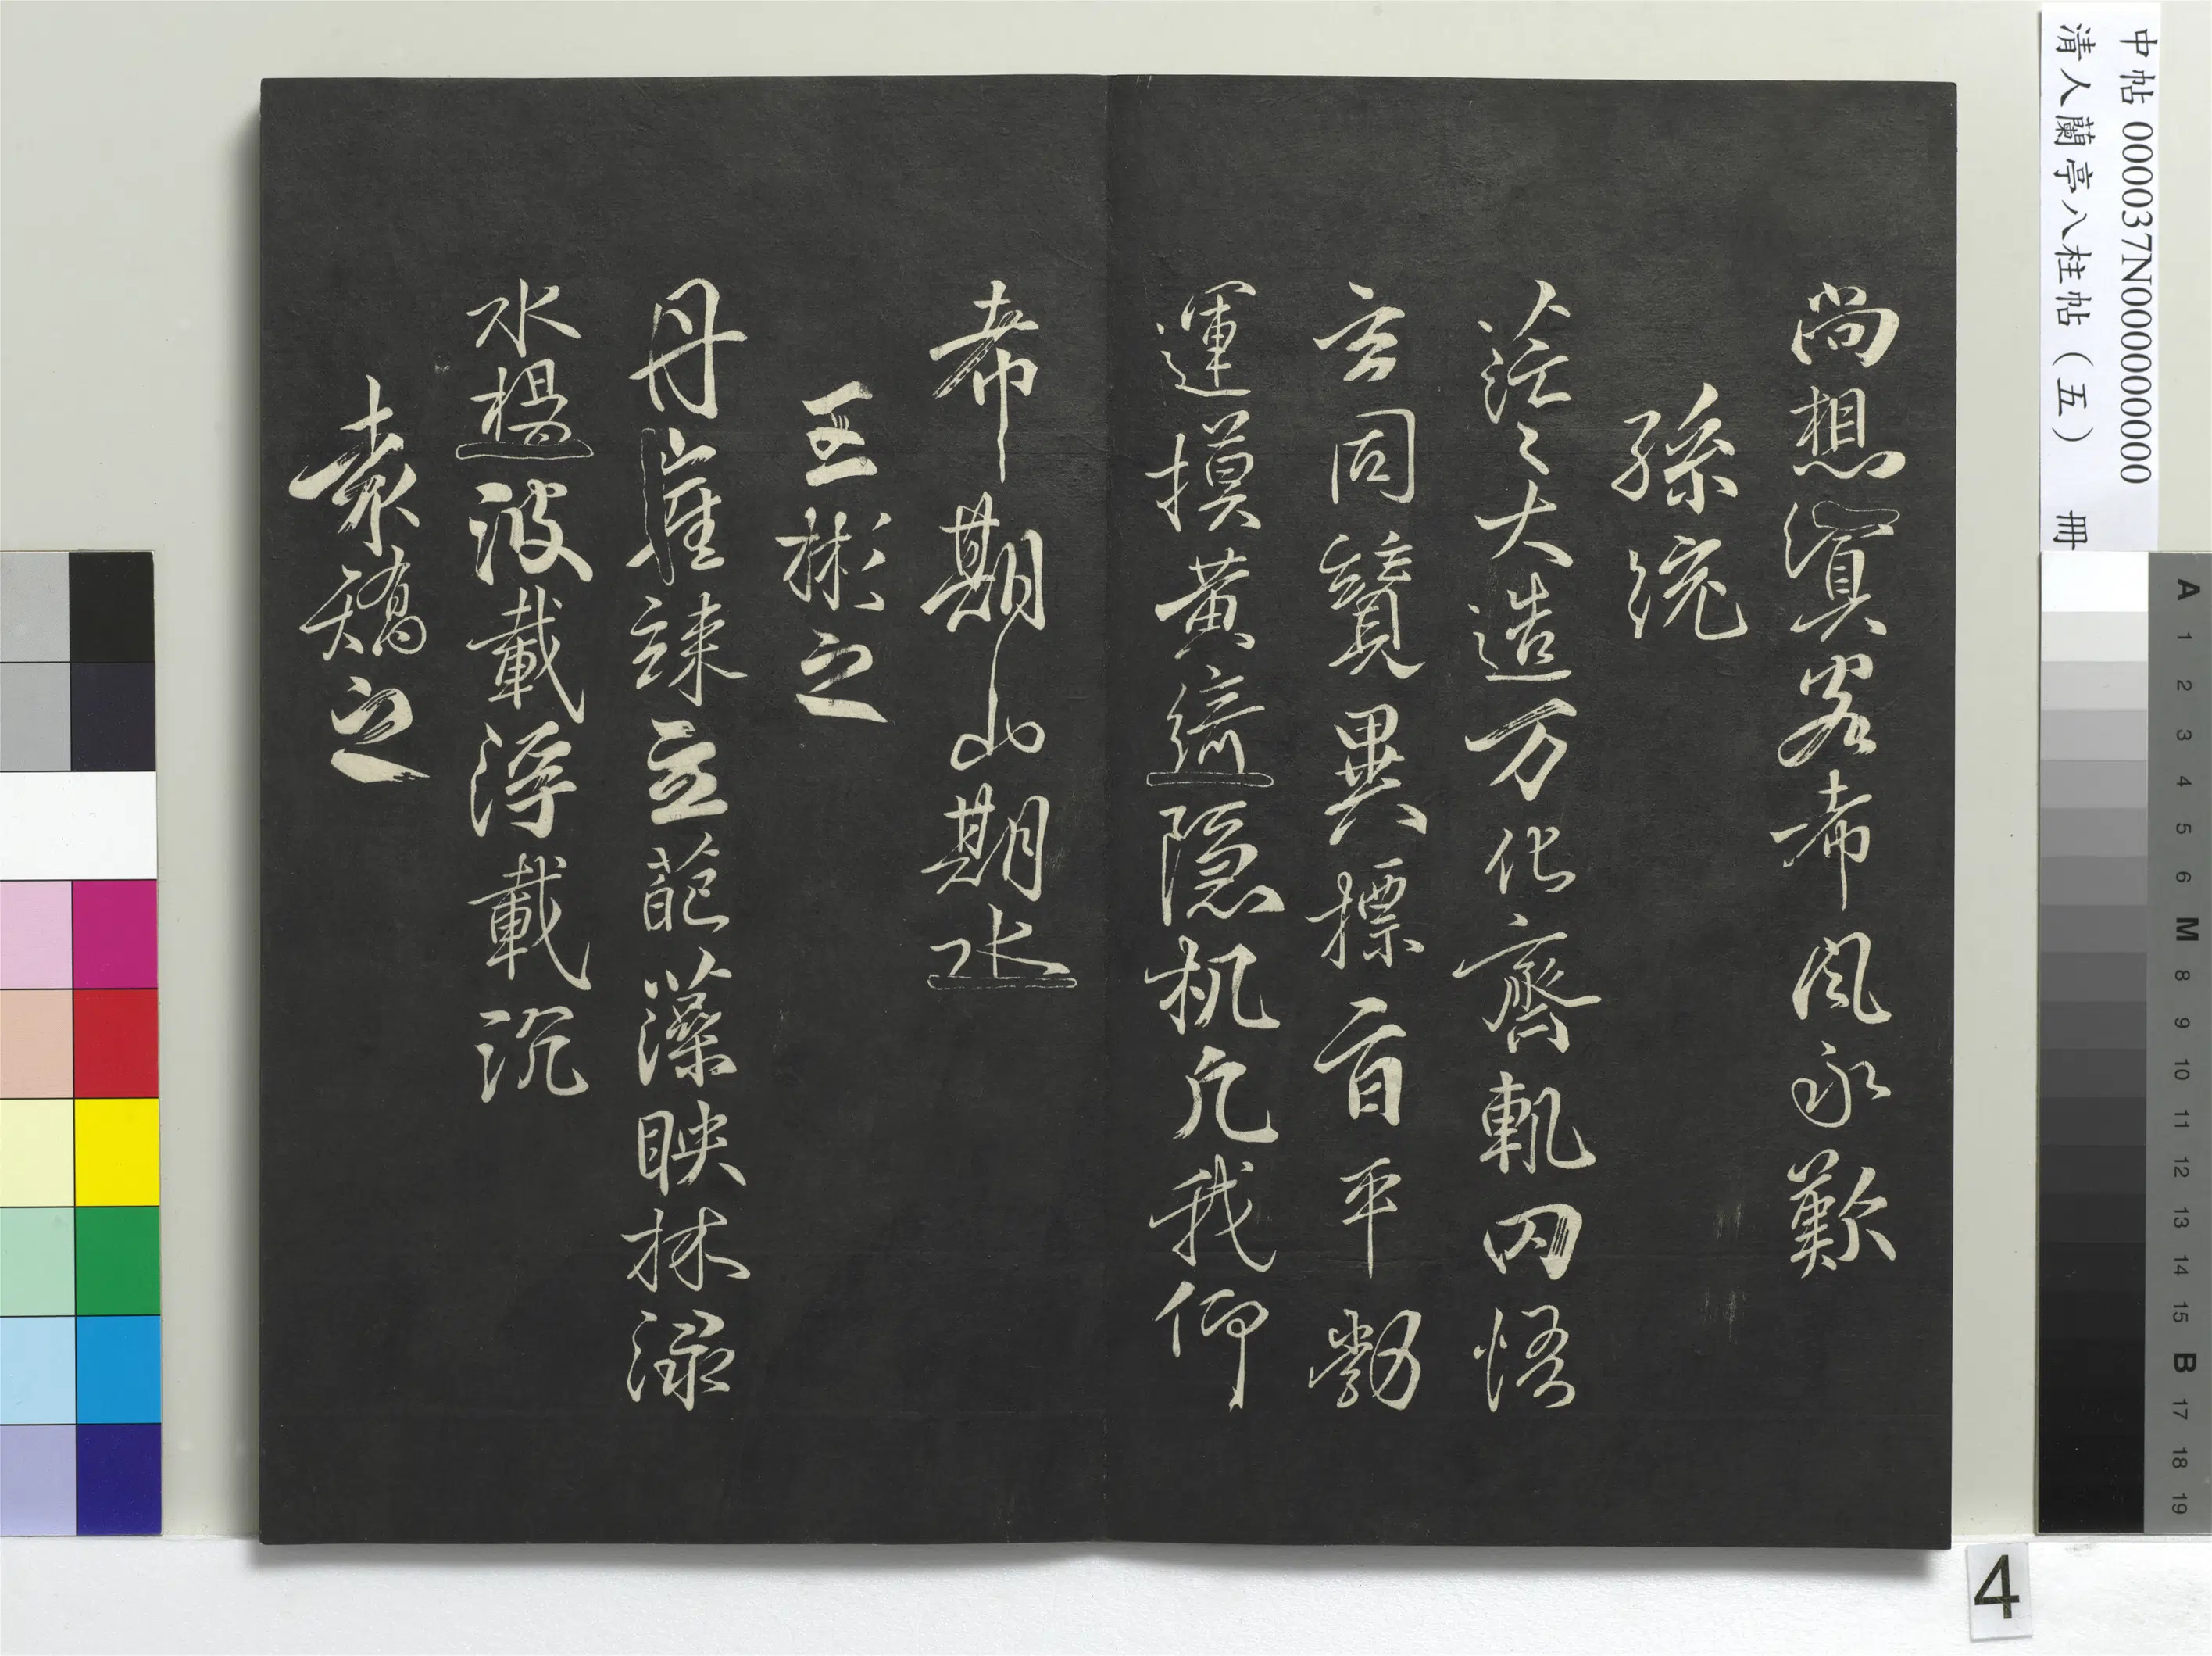 尚想冥客希風永歎
孫統
茫々大造万化齊軌罔悟
玄同競異摽旨平勃
運謨黃綺隱机凡我仰
希期山期水
王彬之
丹崖竦立葩藻暎林淥
水楊波載浮載沉
袁矯之
中帖 000037N000000000
清人蘭亭八柱帖（五） 冊
A 1 2 3 4 5 6 M 8 9 10 11 12 13 14 15 B 17 18 19
4